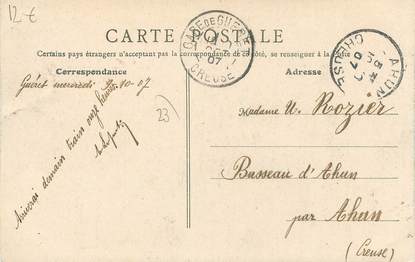 12 €
CARTE POSTALE
Certains pays étrangers n'acceptant pas la correspondance de ce côté, se renseigner à la poste
GARE DE GUÉRET
07
CREUSE
AHUN
07
CREUSE
Correspondance
Adresse
Guéret mercredi 9-10-07
Arriverai demain train onze heures
23
Madame V. Rozier
Busseau d'Ahun
par Ahun
(Creuse)